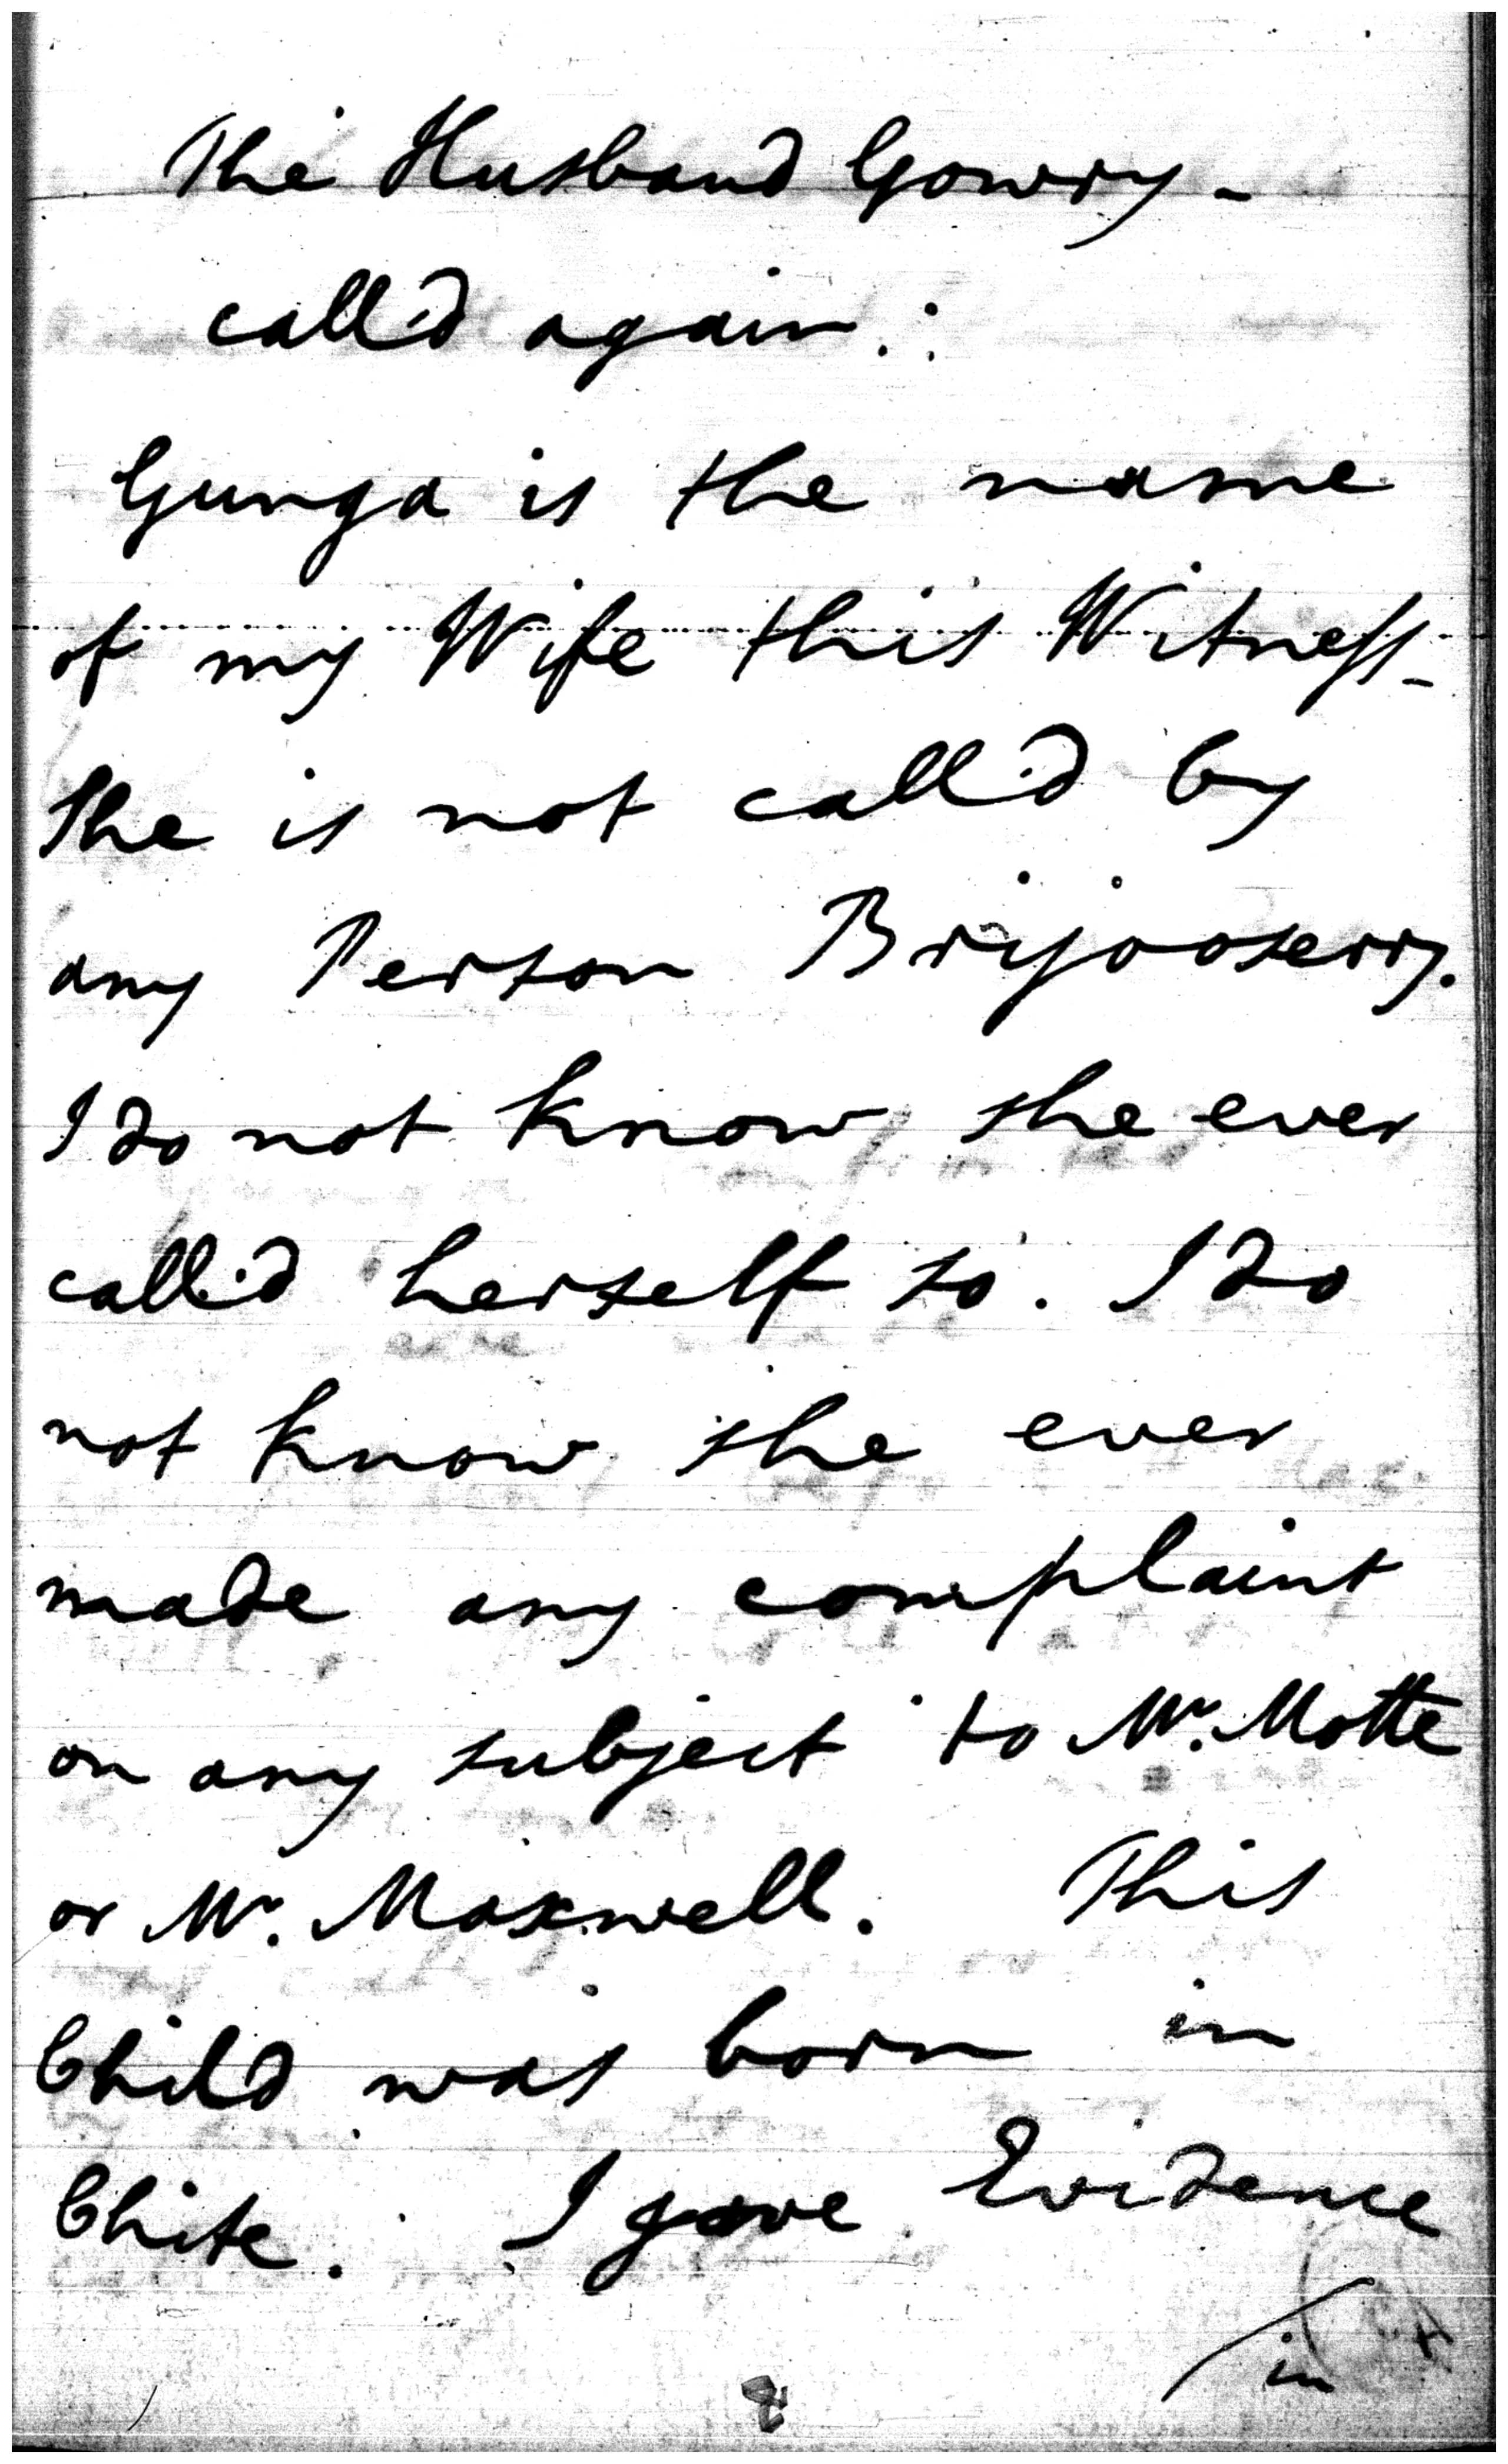 The Husband Gowry -
call'd again.:
Gunga is the name
of my Wife this Witness -
She is not call'd by
any Person Brijooserry.
I do not know she ever
call'd herself so. I do
not know she ever
made any complaint
on any subject to Mr. Motte
or Mr. Maxwell. This
Child was born in
Chite. I gave Evidence
/in